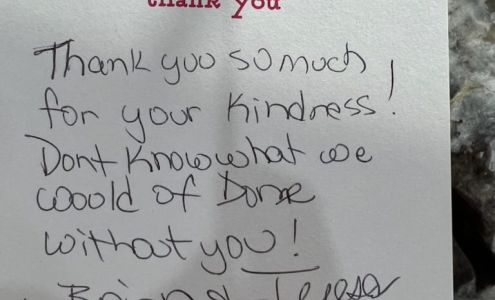 thank you
Thank you so much
for your kindness!
Dont Know what we
woould of Done
without you!